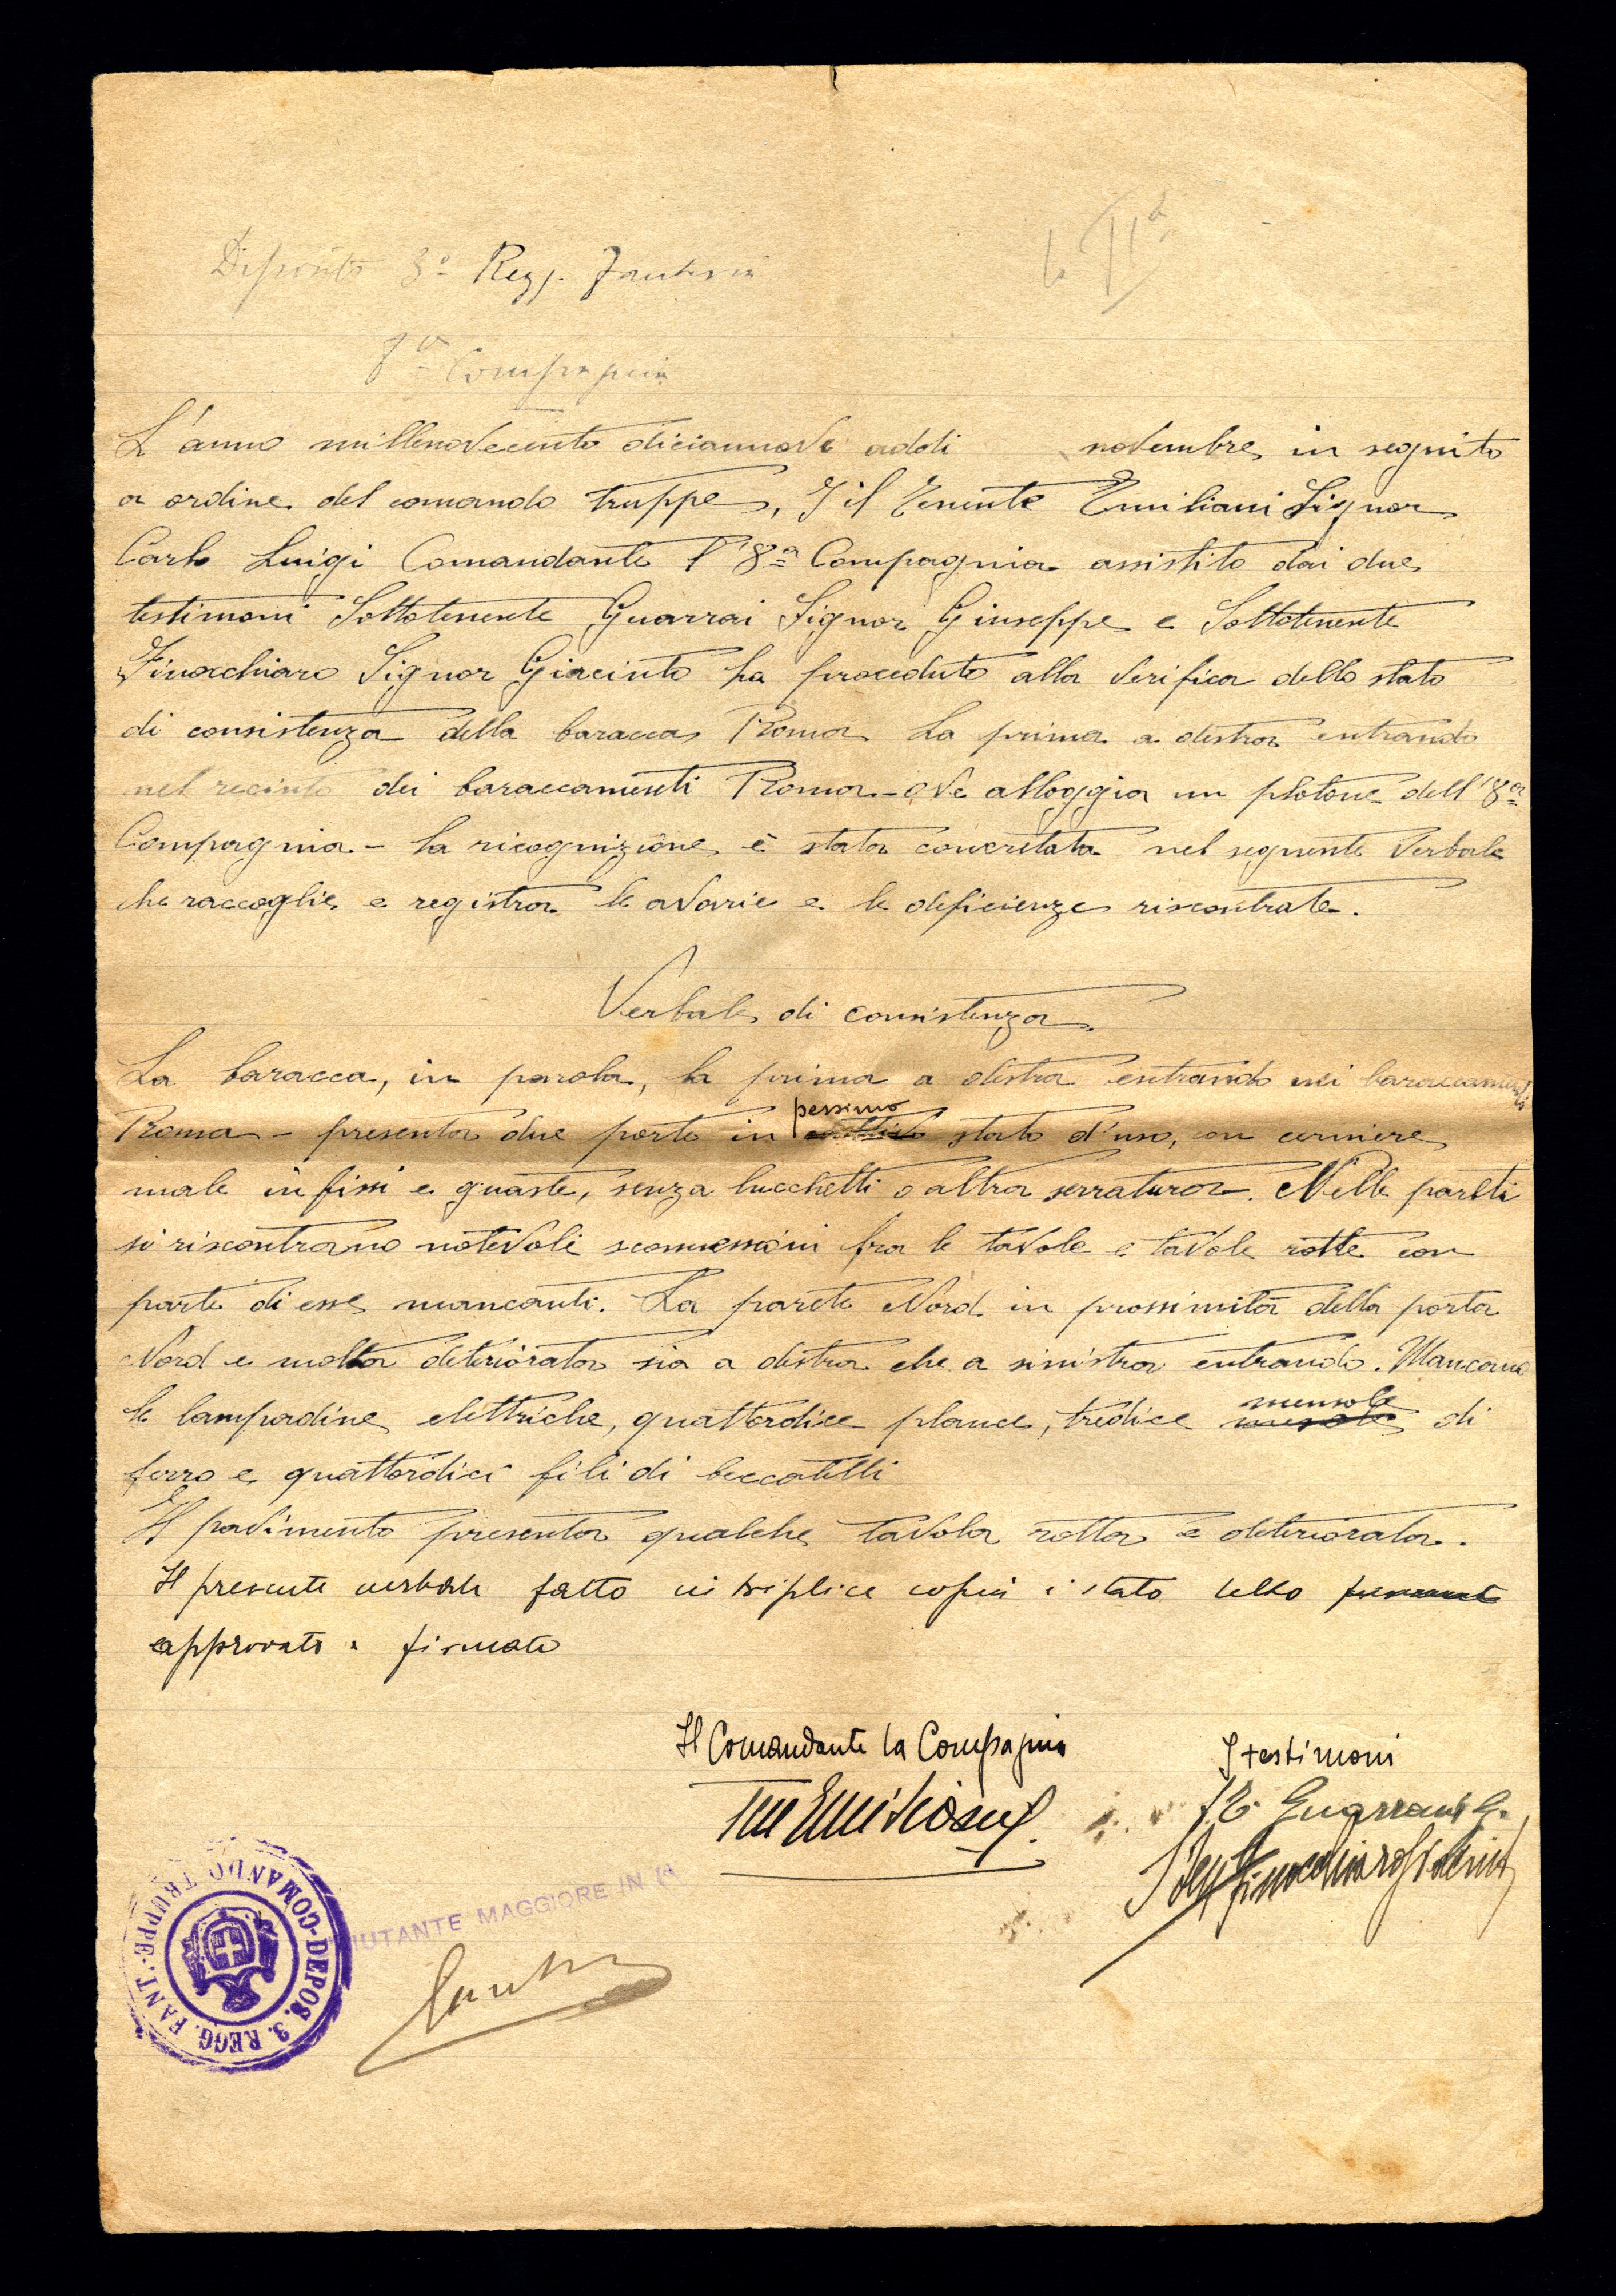 Deposito 3º Regg. Fanteria
8ª Compagnia
L'anno millenovecento diciannove addì novembre in seguito
a ordine del comando truppe, il Tenente Emiliani Signor
Carlo Luigi Comandante l'8ª Compagnia assistito dai due
testimoni Sottotenente Guarrai Signor Giuseppe e Sottotenente
Finocchiaro Signor Giacinto ha proceduto alla verifica dello stato
di consistenza della baracca Roma La prima a destra entrando
nel recinto dei baraccamenti Roma - ove alloggia un plotone dell'8ª
Compagnia - La ricognizione è stata concretata nel seguente verbale
che raccoglie e registra le avarie e le deficienze riscontrate.
Verbale di consistenza
La baracca, in parola, la prima a destra entrando nei baraccamenti
Roma - presenta due porte in pessimo stato d'uso, con cerniere
male infissi e guaste, senza lucchetti o altra serratura. Nelle pareti
si riscontrano notevoli sconnessioni fra le tavole e tavole rotte con
parte di esse mancanti. La parete Nord in prossimità della porta
Nord e molta deteriorata sia a destra che a sinistra entrando. Mancano
le lampadine elettriche, quattordice plance, tredice mensole di
ferro e quattordici fili di beccatelli
Il pavimento presenta qualche tavola rotta e deteriorata.
Il presente verbale fatto in triplice copia è stato letto
approvato e firmato
Il Comandante la Compagnia
I testimoni
Ten Emiliani
S.T. Guarrai G.
S Ten Finocchiaro Giacinto
AIUTANTE MAGGIORE IN 1ª
COMANDO TRUPPE - DEPOS. 3. REGG. FANT.